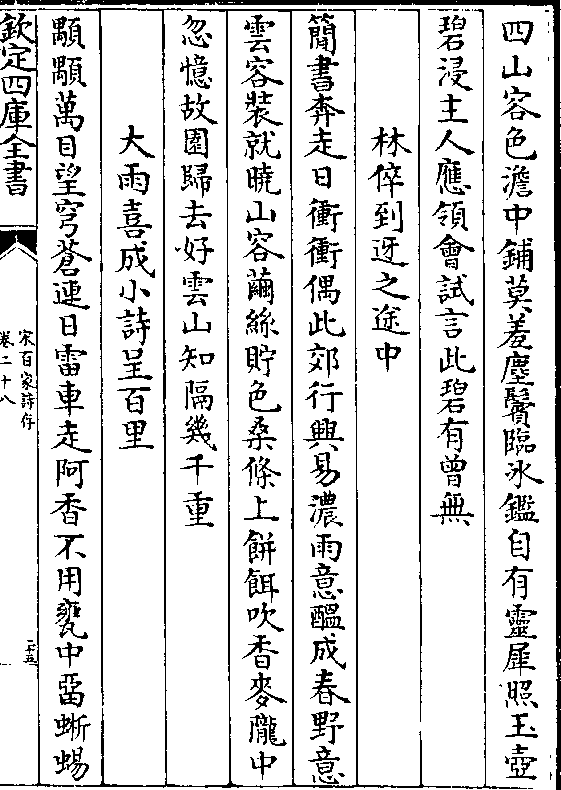 四山容色澹中鋪莫羞塵鬢臨氷鑑自有靈犀照玉壺
碧浸主人應領㑹試言此碧有曾無
林倅到迓之途中
簡書奔走日衝衝偶此郊行興易濃雨意醞成春野意
雲容裝就曉山容繭絲貯色桑條上餅餌吹香麥隴中
忽憶故園歸去好雲山知隔幾千重
大雨喜成小詩呈百里
顒顒萬目望穹蒼連日雷車走阿香不用甕中留蜥蜴
欽定四庫全書
宋百家詩存
卷二十八
二十五